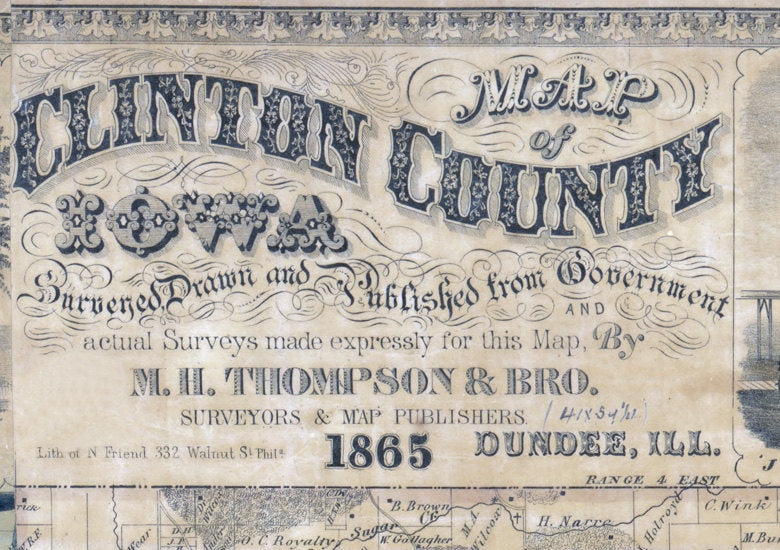 MAP
of
CLINTON COUNTY
IOWA
Surveyed, Drawn and Published from Government
AND
actual Surveys made expressly for this Map, By
M. H. THOMPSON & BRO.
SURVEYORS & MAP PUBLISHERS.
1865 DUNDEE, ILL.
Lith of N Friend 332 Walnut St Phila
RANGE 4 EAST
B. Brown
C. Wink
Sugar Cr.
H. Narre
O. C. Royalty
W. Gallagher
M. A. Wilcox
Holroyd
M. Bu